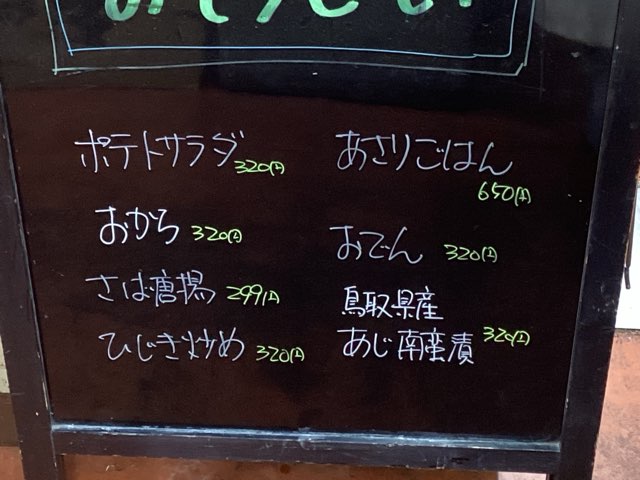 ポテトサラダ 320円
おから 320円
さば唐揚 299円
ひじき炒め 320円
あさりごはん
650円
おでん 320円
鳥取県産
あじ南蛮漬 320円